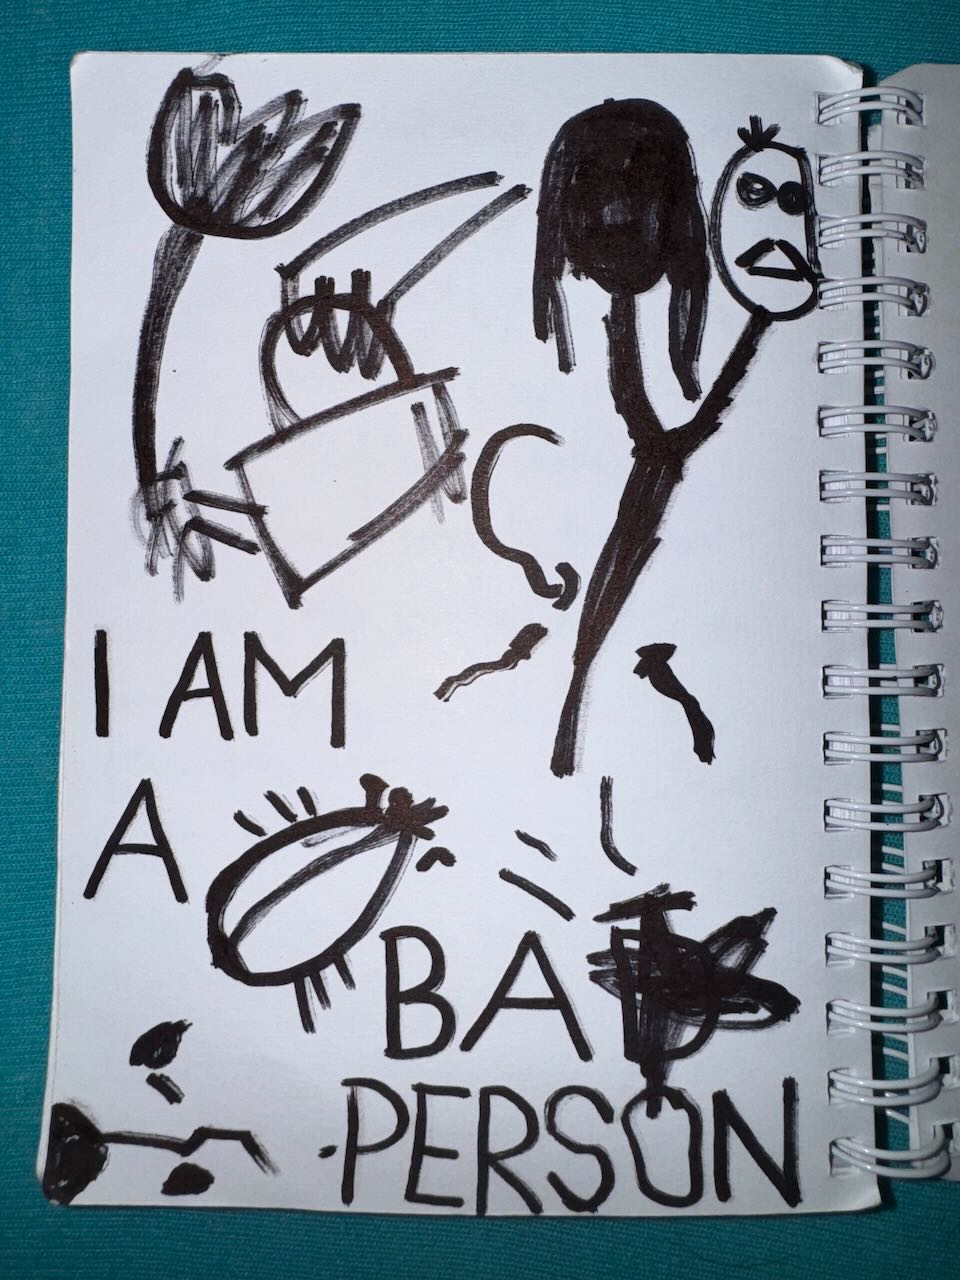 I AM
A
BAD
PERSON